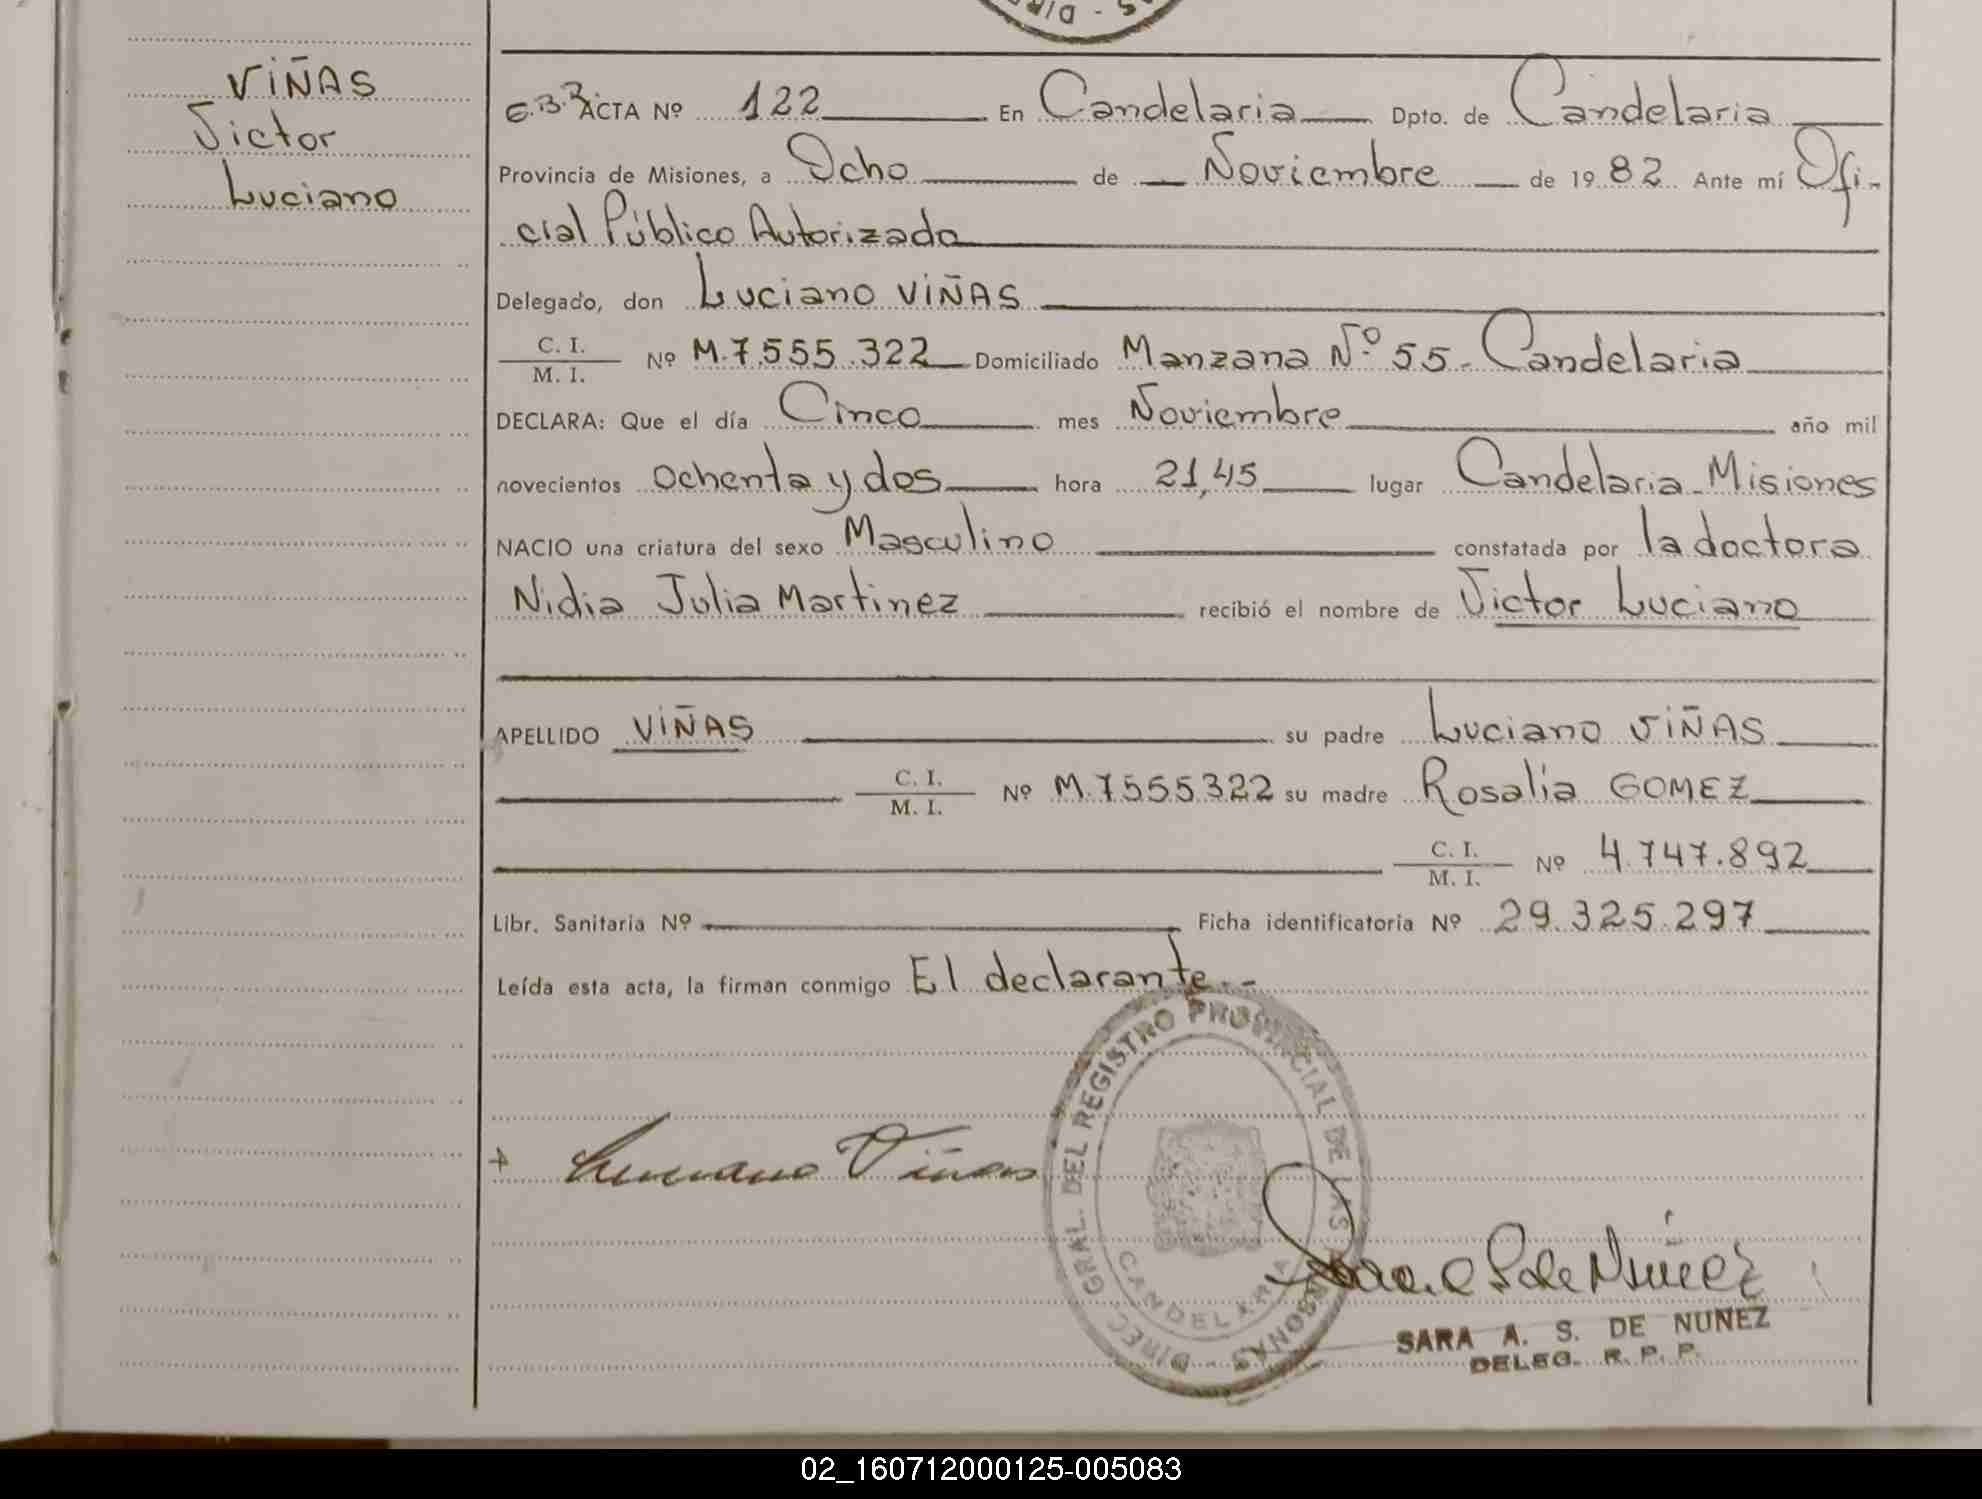 AS - DIREC
VIÑAS
Victor
Luciano
ACTA Nº 122 En Candelaria Dpto. de Candelaria
Provincia de Misiones, a Ocho de Noviembre de 1982 Ante mí Ofi-
cial Público Autorizado
Delegado, don Luciano VIÑAS
C. I.
M. I.
Nº M.7.555.322 Domiciliado Manzana Nº 55- Candelaria
DECLARA: Que el día Cinco mes Noviembre año mil
novecientos Ochenta y dos hora 21,45 lugar Candelaria-Misiones
NACIO una criatura del sexo Masculino constatada por la doctora
Nidia Julia Martinez recibió el nombre de Victor Luciano
APELLIDO VIÑAS su padre Luciano VIÑAS
C. I.
M. I.
Nº M.7555322 su madre Rosalia GOMEZ
C. I.
M. I.
Nº 4.747.892
Libr. Sanitaria Nº Ficha identificatoria Nº 29.325.297
Leída esta acta, la firman conmigo El declarante.-
DIREC. GRAL. DEL REGISTRO PROVINCIAL DE LAS PERSONAS
CANDELARIA
Luciano Viñas
Sara S de Nuñez
SARA A. S. DE NUÑEZ
DELEG. R. P. P.
02_160712000125-005083